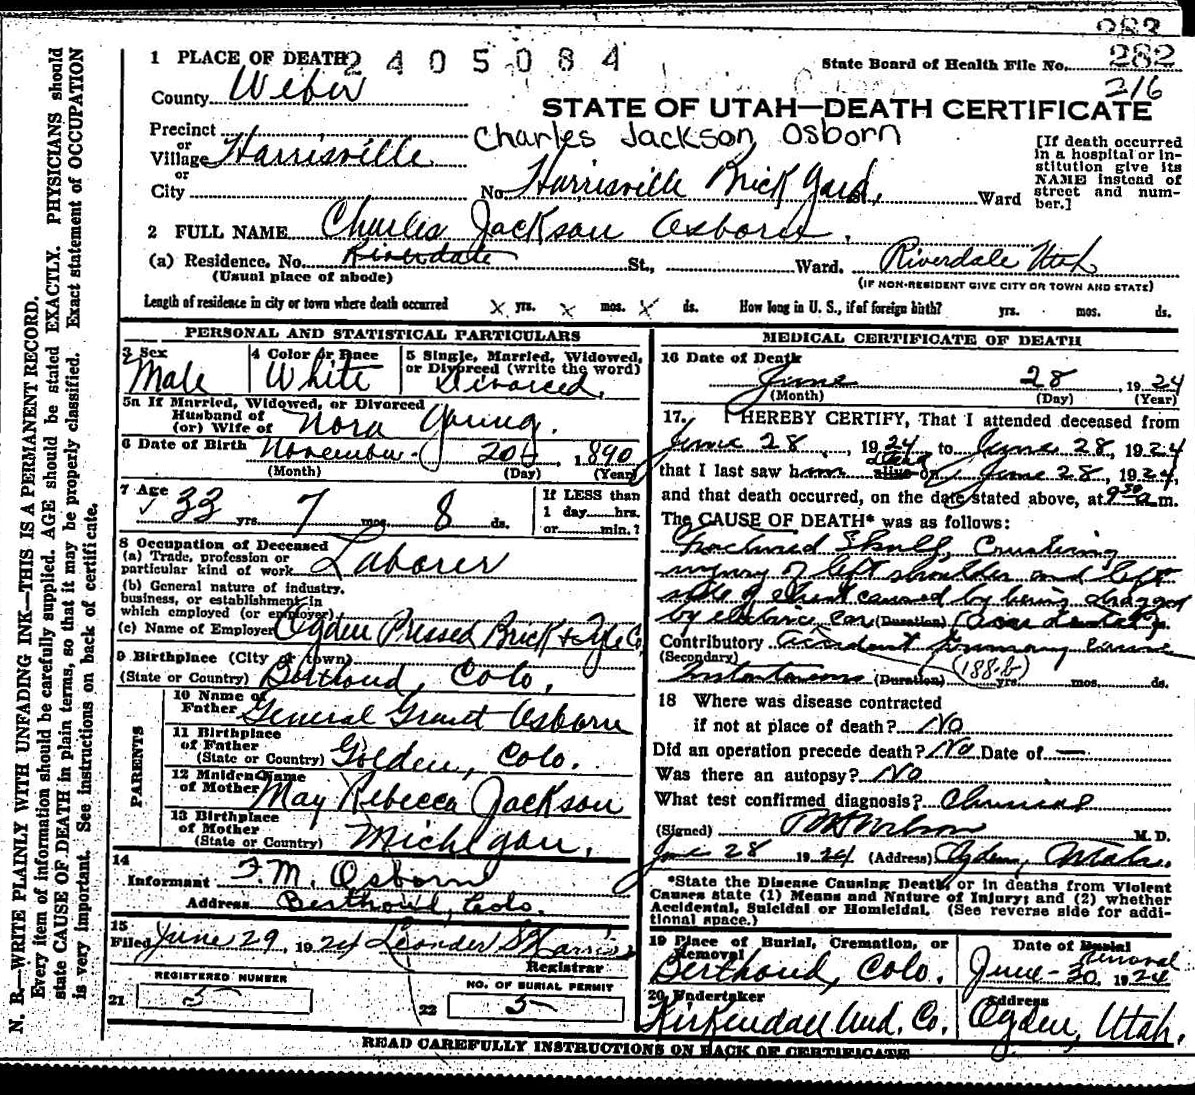 283
282
216
1 PLACE OF DEATH 2405084 State Board of Health File No.
County Weber
STATE OF UTAH—DEATH CERTIFICATE
Precinct
or
Village Harrisville
or
City
Charles Jackson Osborn
No. Harrisville Brick Yard, St, Ward
[If death occurred
in a hospital or in-
stitution give its
NAME instead of
street and num-
ber.]
2 FULL NAME Charles Jackson Osborn.
(a) Residence. No. Riverdale St., Ward. Riverdale Utah
(Usual place of abode) (IF NON-RESIDENT GIVE CITY OR TOWN AND STATE)
Length of residence in city or town where death occurred x yrs. x mos. x ds. How long in U. S., if of foreign birth? yrs. mos. ds.
PERSONAL AND STATISTICAL PARTICULARS
3 Sex Male
4 Color or Race White
5 Single, Married, Widowed,
or Divorced (write the word)
Divorced.
5a If Married, Widowed, or Divorced
Husband of
(or) Wife of Nora Young.
6 Date of Birth November 20 1890
(Month) (Day) (Year)
7 Age 33 yrs. 7 mos. 8 ds.
If LESS than
1 day hrs.
or min.?
8 Occupation of Deceased
(a) Trade, profession or
particular kind of work Laborer
(b) General nature of industry,
business, or establishment in
which employed (or employer)
(c) Name of Employer Ogden Pressed Brick & Tyle Co.
9 Birthplace (City or town)
(State or Country) Berthoud, Colo.
PARENTS
10 Name of
Father General Grant Osborn
11 Birthplace
of Father
(State or Country) Golden, Colo.
12 Maiden Name
of Mother May Rebecca Jackson
13 Birthplace
of Mother
(State or Country) Michigan.
14
Informant F. M. Osborn
Address Berthoud, Colo.
15
Filed June 29, 1924 Leander S Harris
Registrar
REGISTERED NUMBER
21 5
NO. OF BURIAL PERMIT
22 5
MEDICAL CERTIFICATE OF DEATH
16 Date of Death
June 28, 1924
(Month) (Day) (Year)
17. I HEREBY CERTIFY, That I attended deceased from
June 28, 1924 to June 28, 1924
that I last saw him alive on dead June 28, 1924,
and that death occurred, on the date stated above, at 9 30 a m.
The CAUSE OF DEATH* was as follows:
Fractured Skull, Crushing
injury of left shoulder and left
side of chest caused by being dragged
by electric car (Duration) Accidental
Contributory Accident Primary cause
(Secondary)
Instantaneous (Duration) yrs. mos. ds.
(188-B)
18 Where was disease contracted
if not at place of death? No
Did an operation precede death? No Date of —
Was there an autopsy? No
What test confirmed diagnosis? Clinical
(Signed) Wilson M. D.
June 28 1924 (Address) Ogden, Utah.
*State the Disease Causing Death, or in deaths from Violent
Causes state (1) Means and Nature of Injury; and (2) whether
Accidental, Suicidal or Homicidal. (See reverse side for addi-
tional space.)
19 Place of Burial, Cremation, or
Removal
Berthoud, Colo.
Date of Burial
Removal
June 30, 1924
20 Undertaker
Kirkendall Und. Co.
Address
Ogden, Utah.
READ CAREFULLY INSTRUCTIONS ON BACK OF CERTIFICATE
N. B.—WRITE PLAINLY WITH UNFADING INK—THIS IS A PERMANENT RECORD.
Every item of information should be carefully supplied. AGE should be stated EXACTLY. PHYSICIANS should
state CAUSE OF DEATH in plain terms, so that it may be properly classified. Exact statement of OCCUPATION
is very important. See instructions on back of certificate.